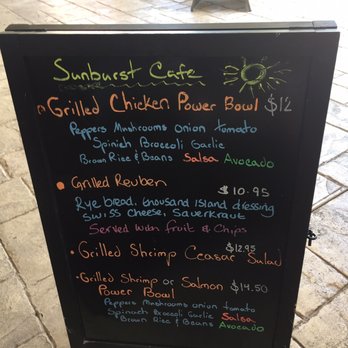 Sunburst Cafe
Grilled Chicken Power Bowl $12
Peppers Mushrooms onion tomato
Spinich Broccoli Garlic
Brown Rice & Beans Salsa Avocado
Grilled Reuben $10.95
Rye bread, thousand Island dressing
Swiss cheese, Sauerkraut
Served with fruit & Chips
Grilled Shrimp Ceasar Salad $12.95
Grilled Shrimp or Salmon $14.50
Power Bowl
Peppers Mushrooms onion tomato
Spinach Broccoli Garlic Salsa
Brown Rice & Beans Avocado